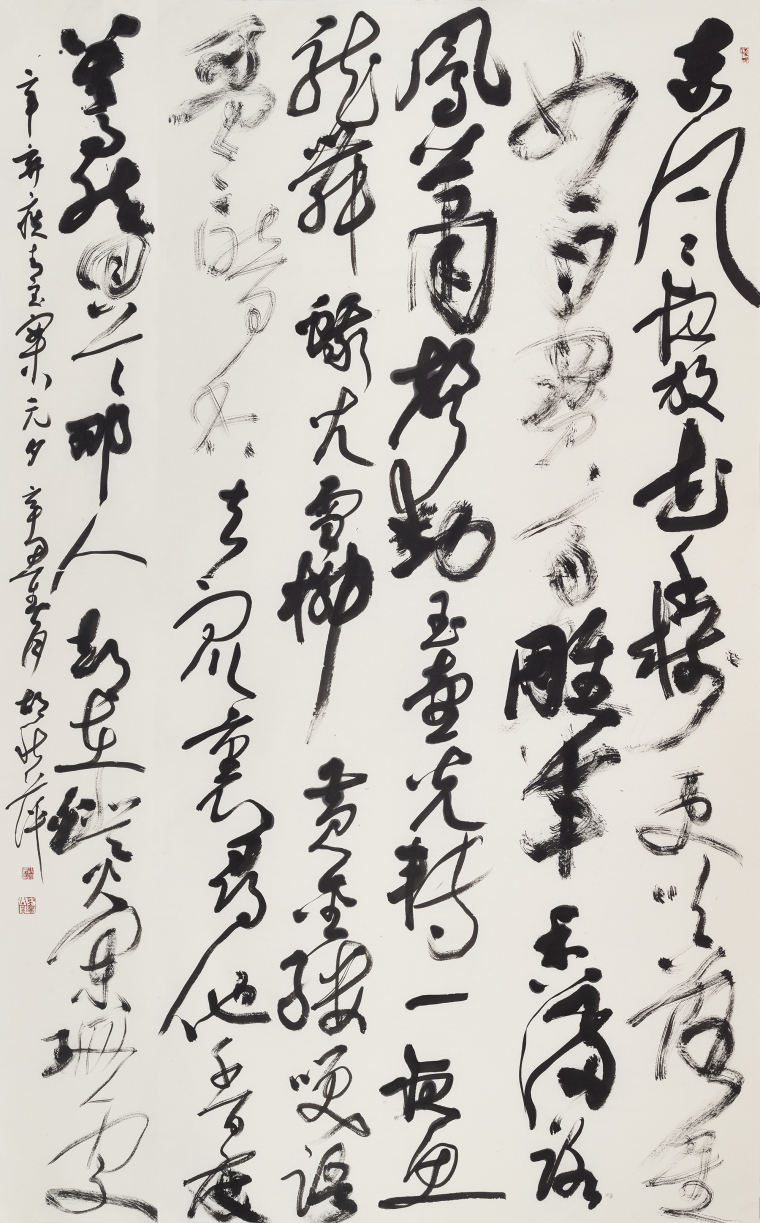 東風夜放花千樹更吹落星
如雨寶馬雕車香滿路
鳳簫聲動玉壺光轉一夜魚
龍舞蛾兒雪柳黃金縷笑語
盈盈暗香去衆裏尋他千百度
驀然回首那人卻在燈火闌珊處
辛弃疾青玉案元夕辛丑春月胡秋萍